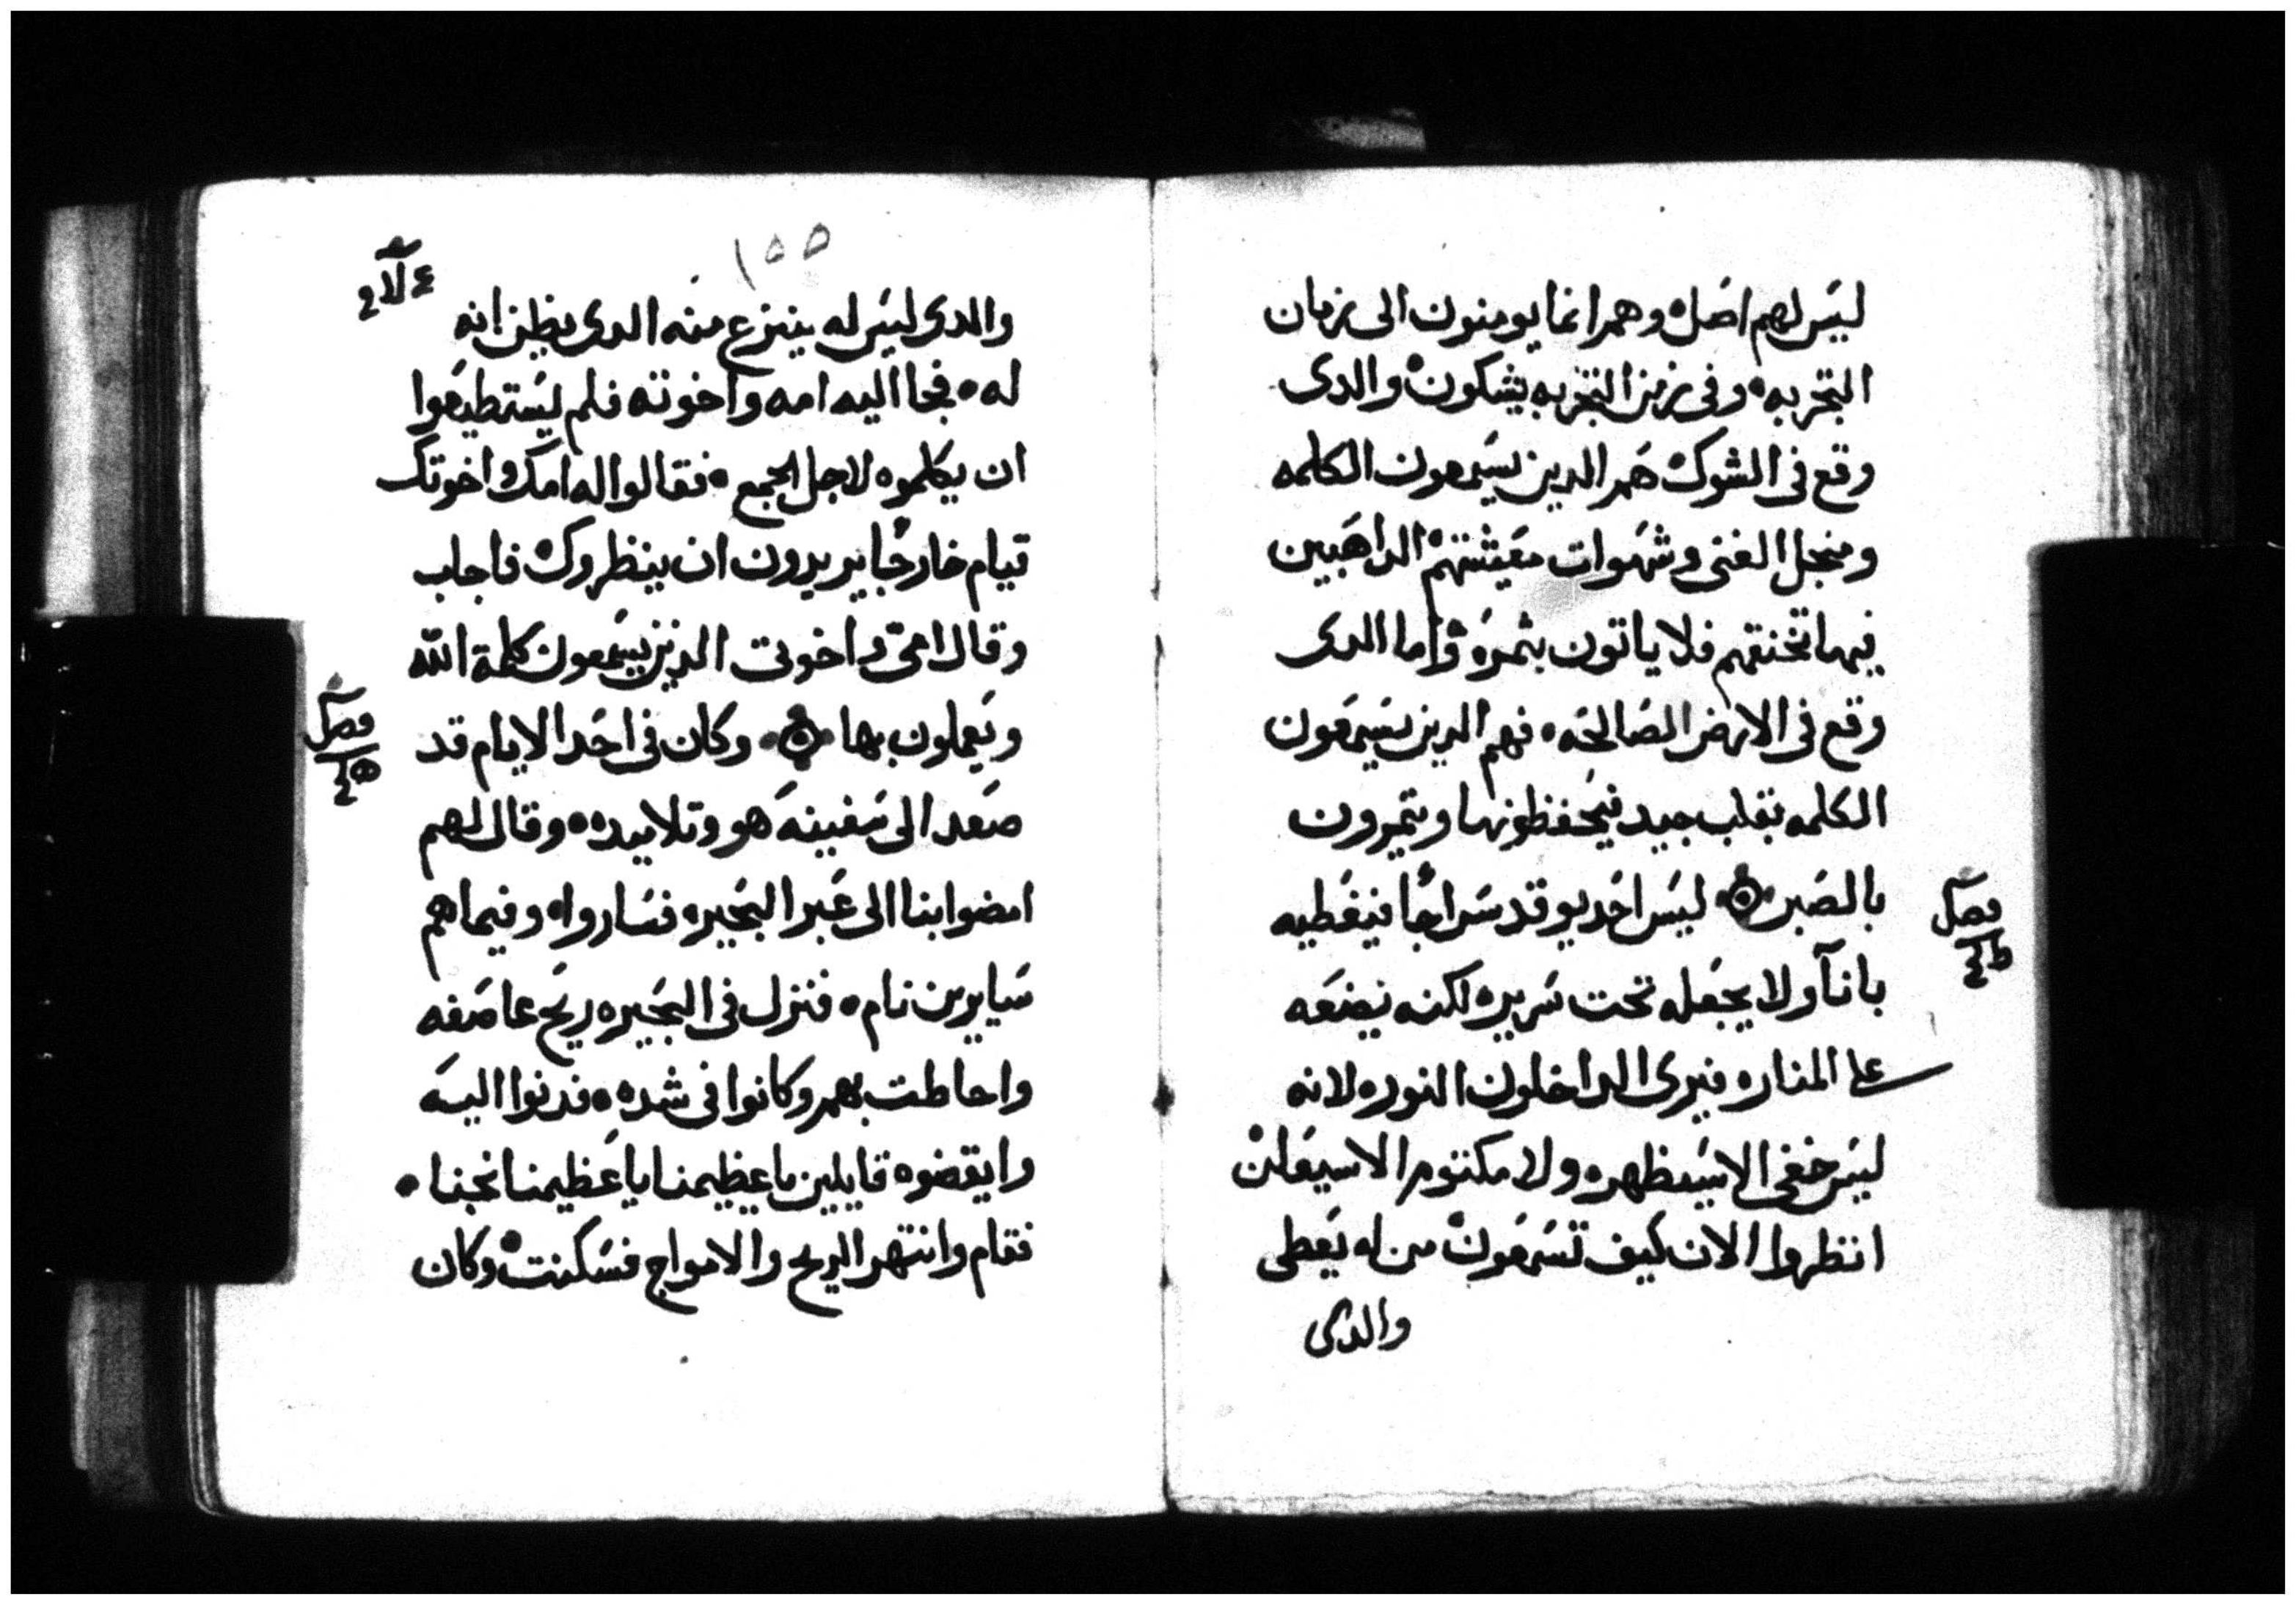 ليس لهم اصل وهم انما يومنون الى زمان
التجربه وفى زمن التجربه يشكون والدى
وقع فى الشوك هم الدين يسمعون الكلمه
ومنجل الغنى وشهوات معيشتهم الداهبين
فيها تخنقهم فلا ياتون بثمره واما الدى
وقع فى الارض الصالحه فهم الدين يسمعون
الكلمه بقلب جيد فيحفظونها ويتمرون
بالصبر ليس احد يوقد سراجًا فيغطيه
بانآ ولا يجعله تحت سرير لكنه يضعه
على المناره فيرى الداخلون النوره لانه
ليس خفى الا سيظهره ولا مكتوم الا سيعلن
انتظروا الان كيف تسمعون من له يعطى
والدى
فصل
١٥٥
والدى ليس له ينزع منه الدى يظن انه
له فجا اليه امه واخوته فلم يستطيعوا
ان يكلموه لاجل الجمع فقالوا له امك واخوتك
قيام خارجًا يريدون ان ينظروك فاجاب
وقال امى واخوتى الذين يسمعون كلمة الله
ويعملون بها وكان فى احد الايام قد
صعد الى سفينه هو وتلاميده وقال لهم
امضوا بنا الى عبر البحيره فساروا وفيما هم
سايرين نام فنزل فى البحيره ريح عاصفه
واحاطت بهم وكانوا فى شده فدنوا اليه
وايقضوه قايلين ياعظيمنا ياعظيمنا نجنا
فقام وانتهر الريح والامواج فسكنت وكان
فصل